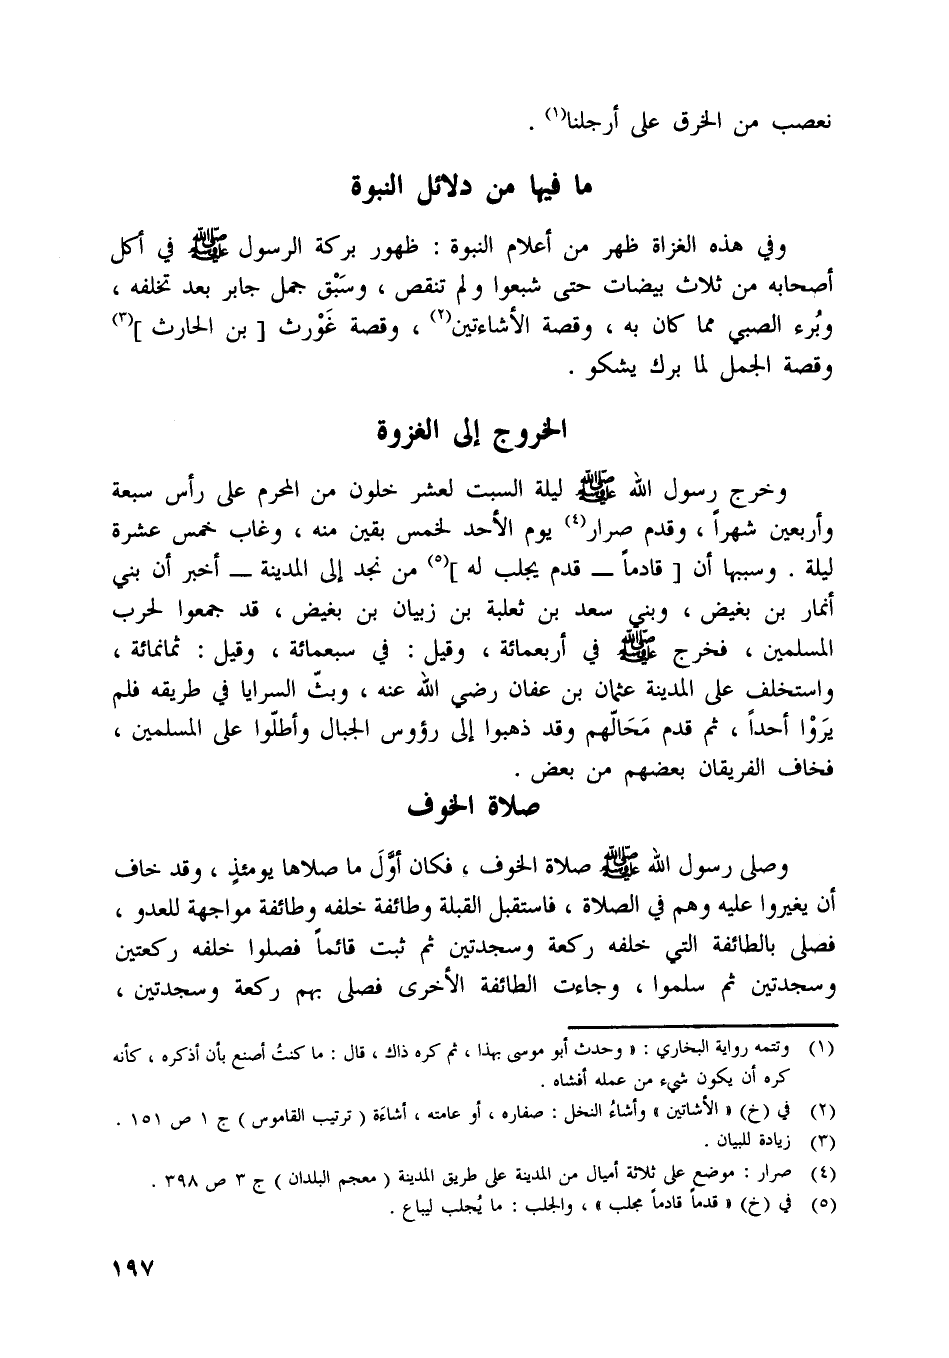 نعصب من الخرق على أرجلنا(١) .
ما فيها من دلائل النبوة
وفي هذه الغزاة ظهر من أعلام النبوة : ظهور بركة الرسول ﷺ في أكل
أصحابه من ثلاث بيضات حتى شبعوا ولم تنقص ، وسَبْق جمل جابر بعد تخلفه ،
وبُرء الصبي مما كان به ، وقصة الأشاءتين(٢) ، وقصة غَوْرث [ بن الحارث ](٣)
وقصة الجمل لما برك يشكو .
الخروج إلى الغزوة
وخرج رسول الله ﷺ ليلة السبت لعشر خلون من المحرم على رأس سبعة
وأربعين شهراً ، وقدم صرار(٤) يوم الأحد لخمس بقين منه ، وغاب خمس عشرة
ليلة . وسببها أن [ قادماً ــ قدم يجلب له ](٥) من نجد إلى المدينة ــ أخبر أن بني
أنمار بن بغيض ، وبني سعد بن ثعلبة بن زبيان بن بغيض ، قد جمعوا لحرب
المسلمين ، فخرج ﷺ في أربعمائة ، وقيل : في سبعمائة ، وقيل : ثمانمائة ،
واستخلف على المدينة عثمان بن عفان رضي الله عنه ، وبثّ السرايا في طريقه فلم
يَرَوْا أحداً ، ثم قدم مَحَالّهم وقد ذهبوا إلى رؤوس الجبال وأطلّوا على المسلمين ،
فخاف الفريقان بعضهم من بعض .
صلاة الخوف
وصلى رسول الله ﷺ صلاة الخوف ، فكان أوَّلَ ما صلاها يومئذٍ ، وقد خاف
أن يغيروا عليه وهم في الصلاة ، فاستقبل القبلة وطائفة خلفه وطائفة مواجهة للعدو ،
فصلى بالطائفة التي خلفه ركعة وسجدتين ثم ثبت قائماً فصلوا خلفه ركعتين
وسجدتين ثم سلموا ، وجاءت الطائفة الأخرى فصلى بهم ركعة وسجدتين ،
(١) وتتمه رواية البخاري : « وحدث أبو موسى بهذا ، ثم كره ذاك ، قال : ما كنتُ أصنع بأن أذكره ، كأنه
كره أن يكون شيء من عمله أفشاه .
(٢) في (خ) « الأشاتين » وأشاءُ النخل : صفاره ، أو عامته ، أشاءَة ( ترتيب القاموس ) ج ١ ص ١٥١ .
(٣) زيادة للبيان .
(٤) صرار : موضع على ثلاثة أميال من المدينة على طريق المدينة ( معجم البلدان ) ج ٣ ص ٣٩٨ .
(٥) في (خ) « قدماً قادماً مجلب » ، والجلب : ما يُجلب ليباع .
١٩٧